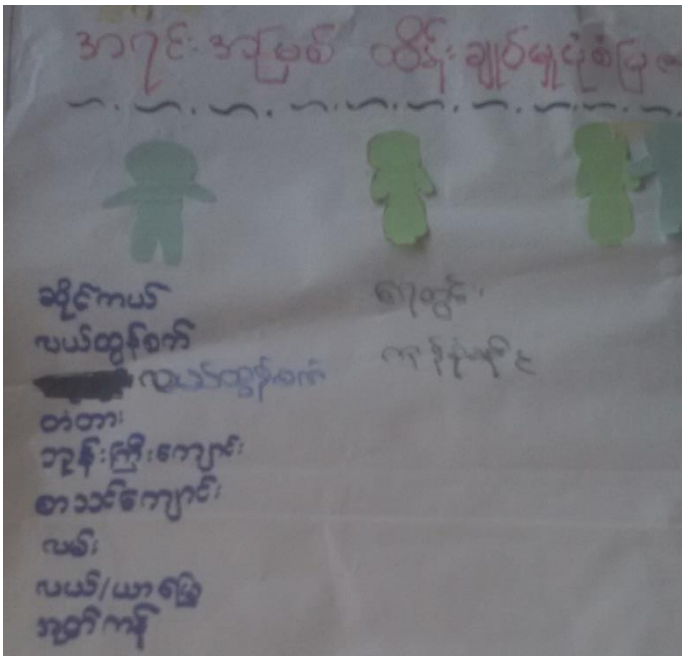 အရင်းအမြစ် ထိန်းချုပ်မှုပုံစံပြ
ဆိုင်ကယ်
လယ်ထွန်စက်
လယ်ထွန်စက်
တံတား
ဘုန်းကြီးကျောင်း
စာသင်ကျောင်း
လမ်း
လယ်/ယာမြေ
အုတ်ကန်
ရေတွင်း